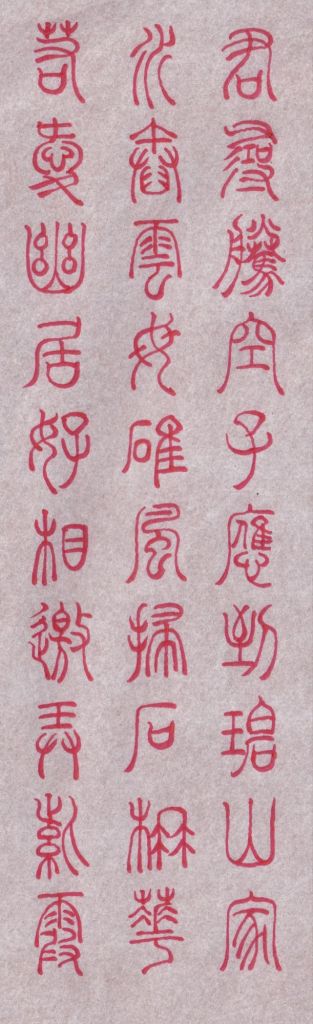 君尋騰空子應到碧山家
水舂雲母碓風掃石柟華
若愛幽居好相邀弄紫霞